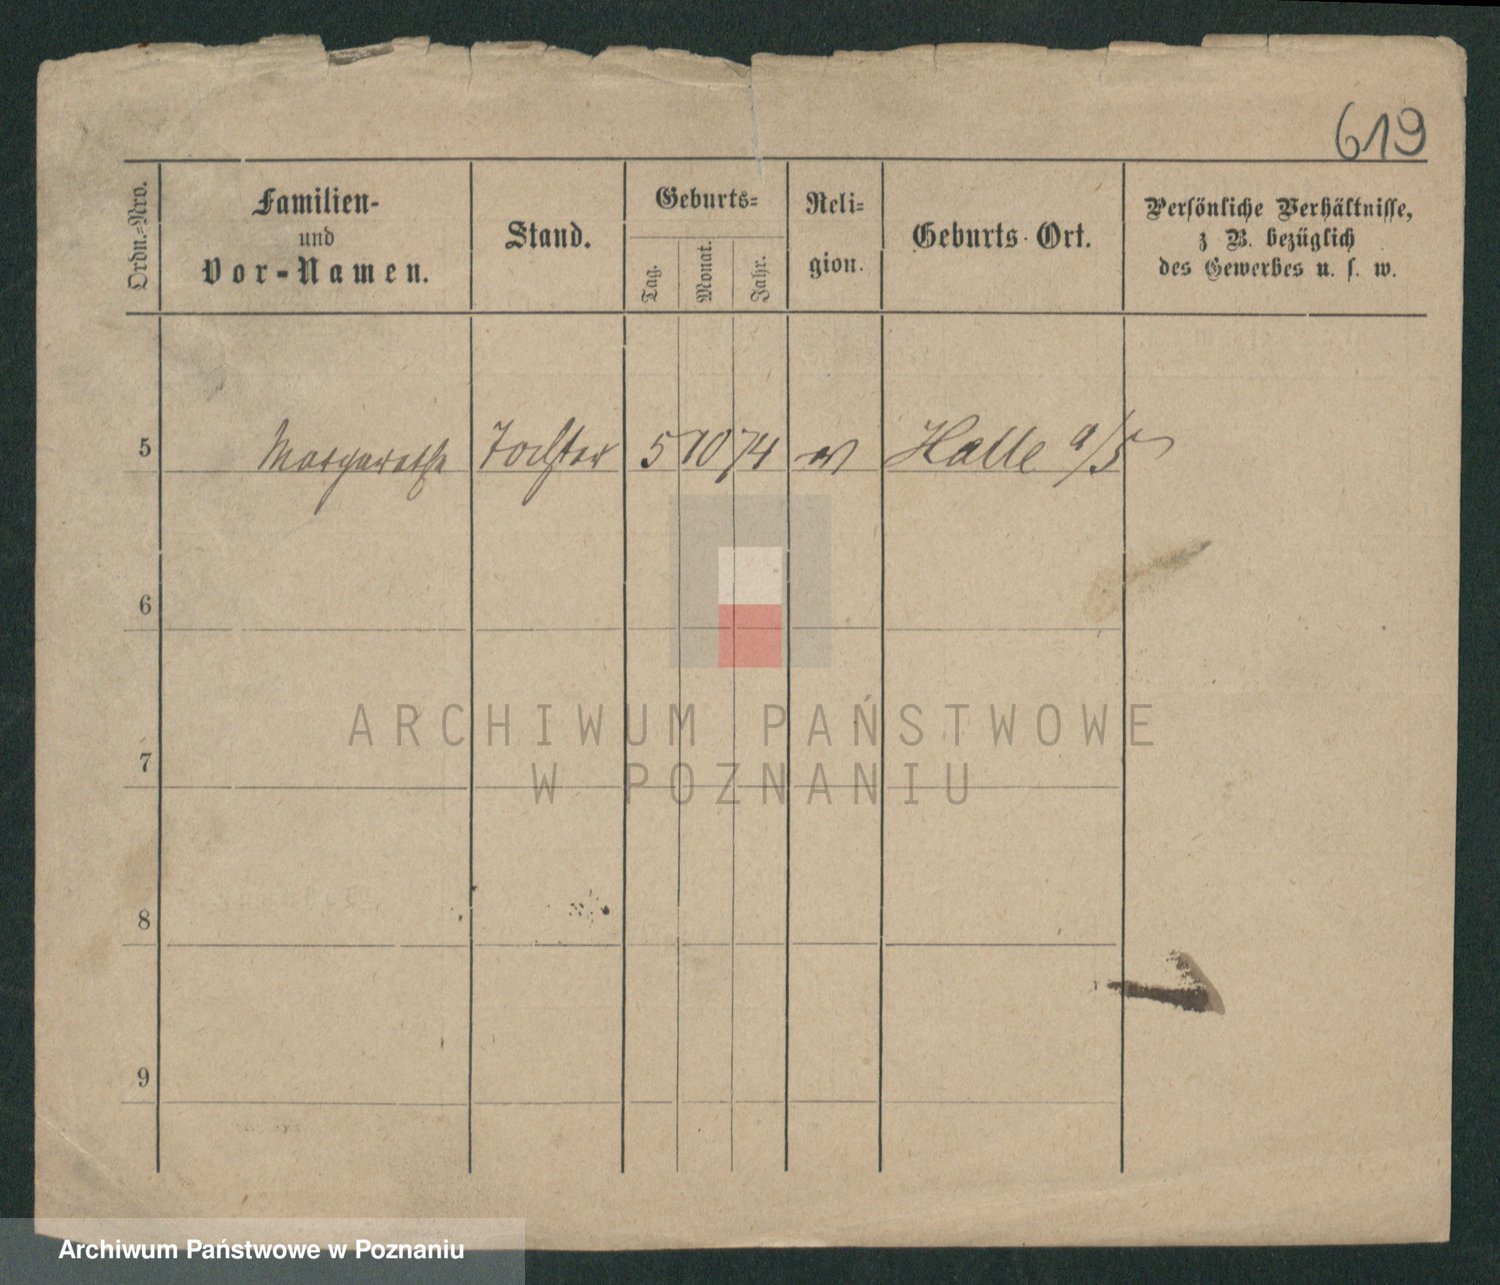 619
Ordn.-Nro.
Familien-
und
Vor-Namen.
Stand.
Geburts-
Tag.
Monat.
Jahr.
Reli-
gion.
Geburts-Ort.
Persönliche Verhältnisse,
z B. bezüglich
des Gewerbes u. s. w.
5 Margarethe Tochter 5 10 74 Halle a/S
6
7
8
9
ARCHIWUM PAŃSTWOWE
W POZNANIU
Archiwum Państwowe w Poznaniu